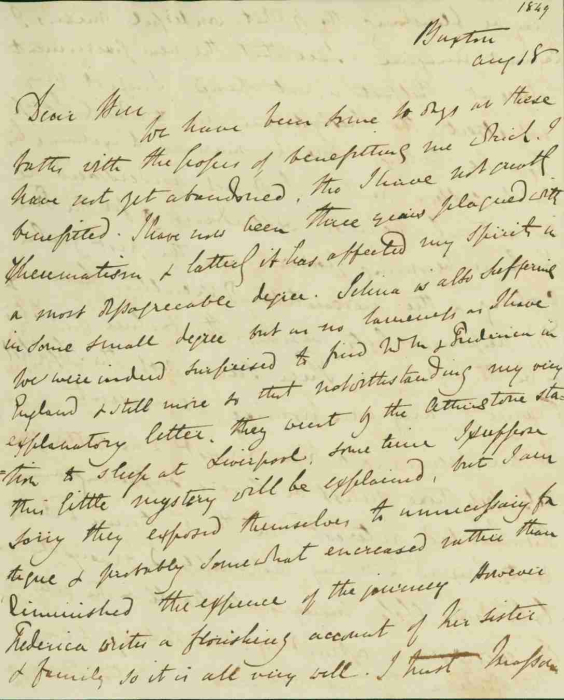 1849
Buxton
Aug 18
Dear Will
We have been some 10 days at these
baths with the hopes of benefitting me which I
have not yet abandoned, tho I have not greatly
benefitted. I have now been three years plagued with
Rheumatism & latterly it has affected my spirits in
a most disagreeable degree. Selina is also suffering
in some small degree but in no lameness as I have
We were indeed surprised to find Wm & Frederica in
England & still more so that notwithstanding my very
explanatory letter, they went to the Atherstone sta=
=tion to sleep at Liverpool, some time I suppose
this little mystery will be explained, but I am
sorry they exposed themselves to unnecessary fa
tigue & probably somewhat encreased rather than
diminished the expence of the journey However
Frederica writes a flourishing account of her sister
& family so it is all very well. I trust